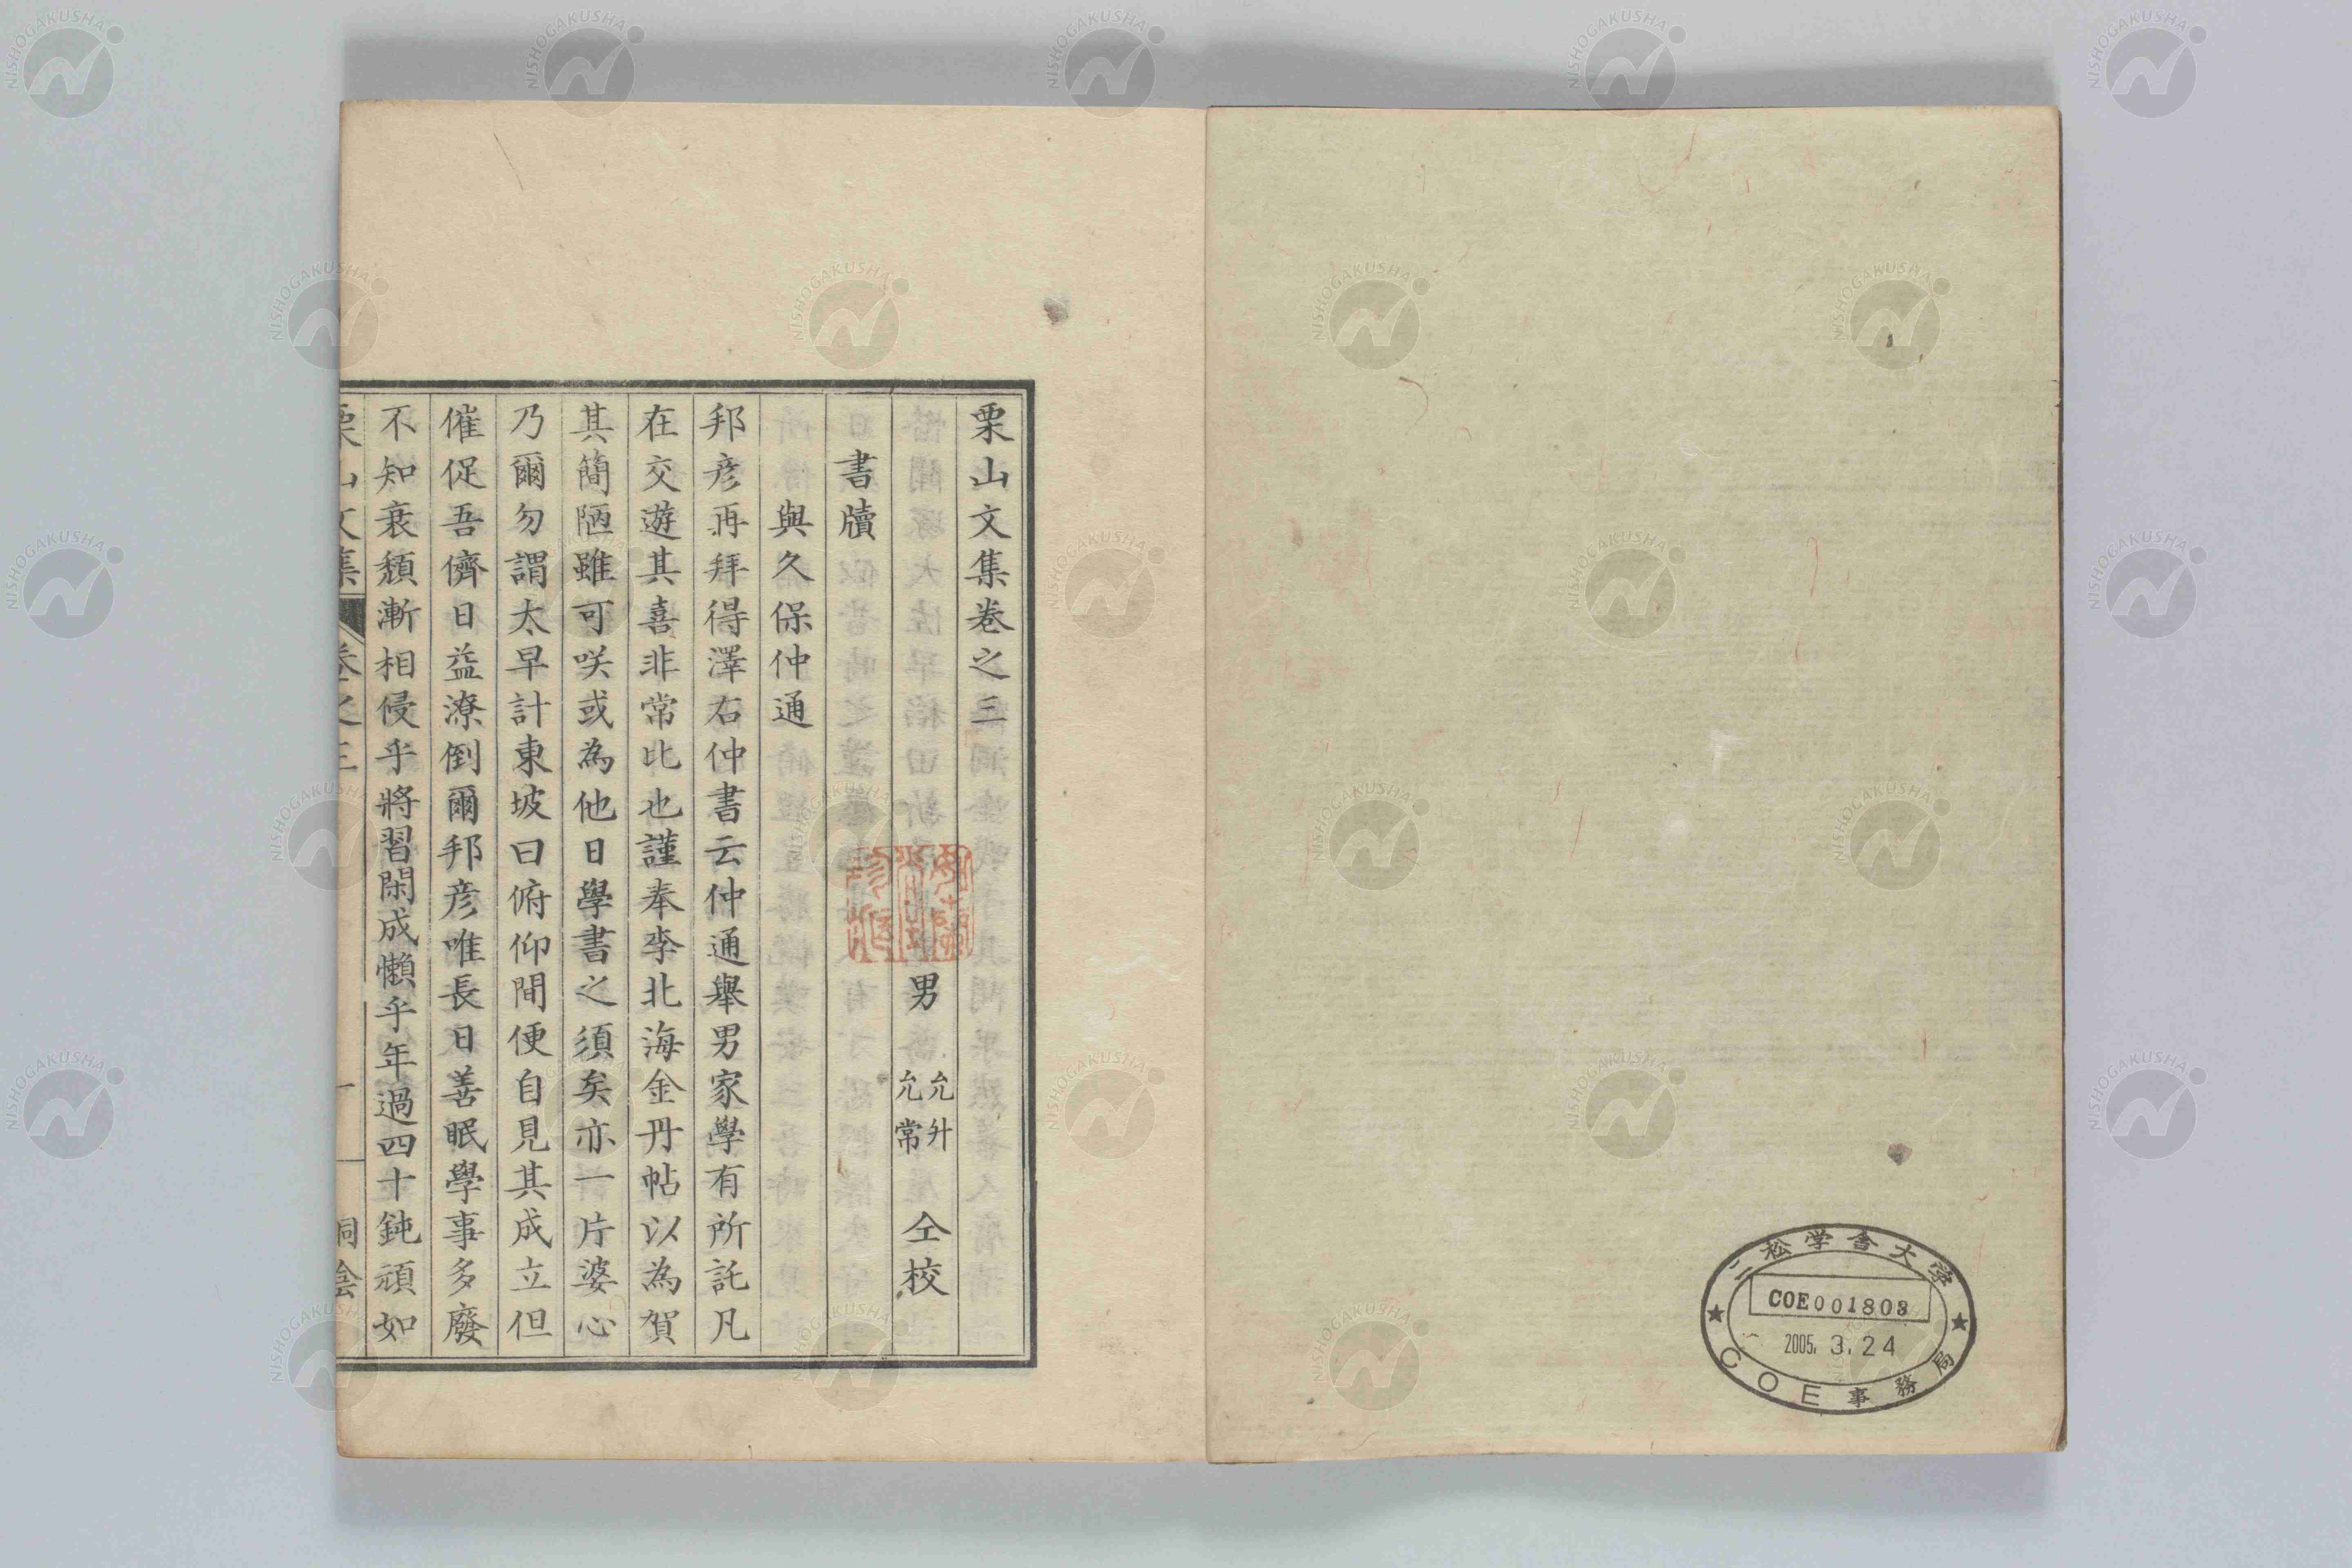 栗山文集卷之三
男 允升 允常 仝校
書牘
與久保仲通
邦彦再拜得澤右仲書云仲通舉男家學有所託凡
在交遊其喜非常比也謹奉李北海金丹帖以為賀
其簡陋雖可咲或為他日學書之須矣亦一片婆心
乃爾勿謂太早計東坡曰俯仰間便自見其成立但
催促吾儕日益潦倒爾邦彦唯長日善眠學事多廢
不知衰頽漸相侵乎將習閑成懶乎年過四十鈍頑如
栗山文集 卷之三 一 桐陰
二松学舎大学
COE001803
2005. 3. 24
COE事務局
NISHOGAKUSHA